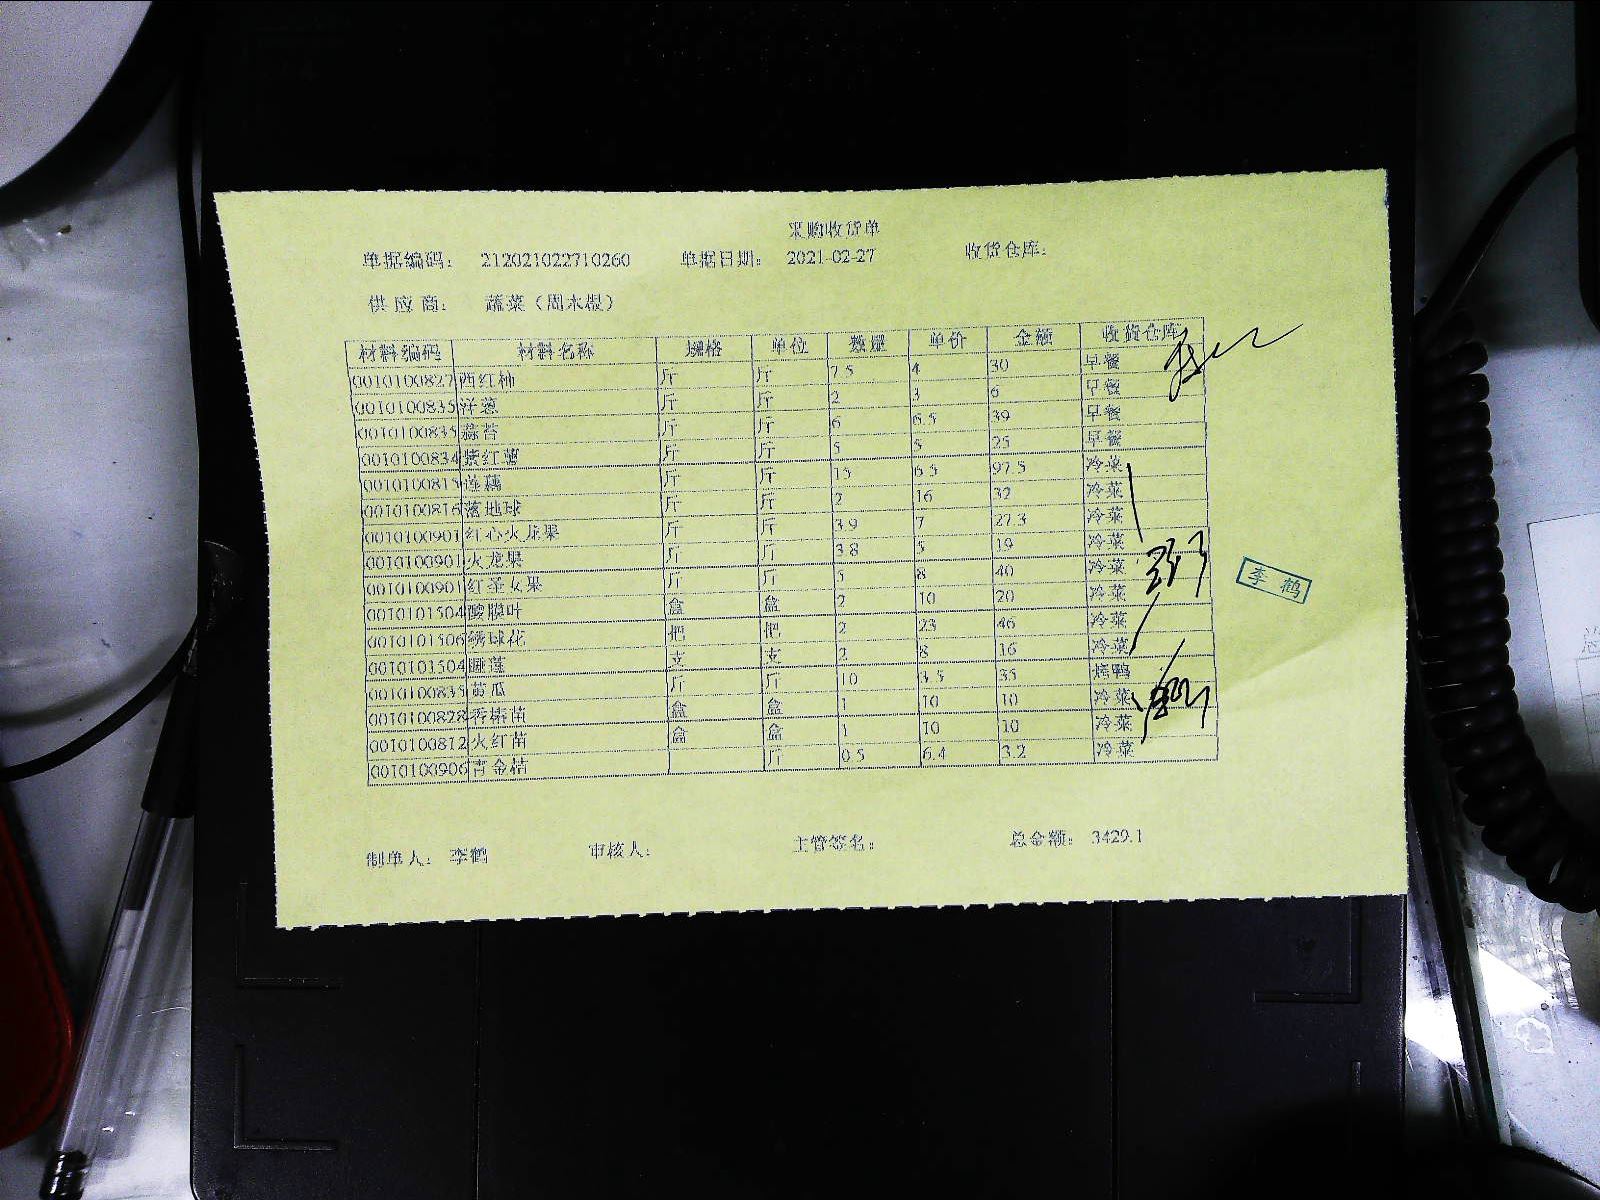 采购收货单
单据编码： 212021022710260 单据日期： 2021-02-27 收货仓库：
供应商： 蔬菜（周永根）
材料编码 材料名称 规格 单位 数量 单价 金额 收货仓库
0010100827 西红柿 斤 斤 7.5 4 30 早餐
0010100835 洋葱 斤 斤 2 3 6 早餐
0010100835 蒜苔 斤 斤 6 6.5 39 早餐
0010100834 紫红薯 斤 斤 5 5 25 早餐
0010100815 莲藕 斤 斤 15 6.5 97.5 冷菜
0010100816 落地球 斤 斤 2 16 32 冷菜
0010100901 红心火龙果 斤 斤 3.9 7 27.3 冷菜
0010100901 火龙果 斤 斤 3.8 5 19 冷菜
0010100901 红圣女果 斤 斤 5 8 40 冷菜
0010101504 酸膜叶 盒 盒 2 10 20 冷菜
0010101506 绣球花 把 把 2 23 46 冷菜
0010101504 睡莲 支 支 2 8 16 冷菜
0010100835 黄瓜 斤 斤 10 3.5 35 烤鸭
0010100828 香椿苗 盒 盒 1 10 10 冷菜
0010100812 火红苗 盒 盒 1 10 10 冷菜
0010100906 青金桔 斤 0.5 6.4 3.2 冷菜
李鹤
制单人： 李鹤 审核人： 主管签名： 总金额： 3429.1